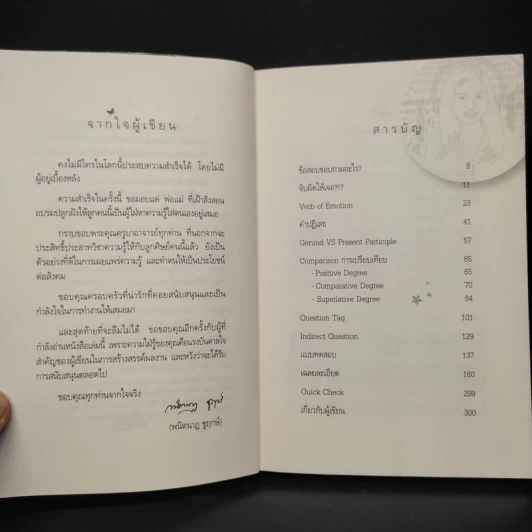 จากใจผู้เขียน
คงไม่มีใครในโลกนี้ประสบความสำเร็จได้ โดยไม่มี
ผู้อยู่เบื้องหลัง
ความสำเร็จในครั้งนี้ ขอมอบแด่ พ่อแม่ ที่เฝ้าสั่งสอน
อบรมปลูกฝังให้ลูกคนนี้เป็นผู้ใฝ่หาความรู้ใส่ตนเองอยู่เสมอ
กราบขอบพระคุณครูบาอาจารย์ทุกท่าน ที่นอกจากจะ
ประสิทธิ์ประสาทวิชาความรู้ให้กับลูกศิษย์คนนี้แล้ว ยังเป็น
ตัวอย่างที่ดีในการเผยแพร่ความรู้ และทำตนให้เป็นประโยชน์
ต่อสังคม
ขอบคุณครอบครัวที่น่ารักที่คอยสนับสนุนและเป็น
กำลังใจในการทำงานให้เสมอมา
และสุดท้ายที่จะลืมไม่ได้ ขอขอบคุณอีกครั้งกับผู้ที่
กำลังอ่านหนังสือเล่มนี้ เพราะความใฝ่รู้ของคุณคือแรงบันดาลใจ
สำคัญของผู้เขียนในการสร้างสรรค์ผลงาน และหวังว่าจะได้รับ
การสนับสนุนตลอดไป
ขอบคุณทุกท่านจากใจจริง
(พนิตนาฏ ชูฤกษ์)
สารบัญ
ข้อสอบชอบถามอะไร? 6
จับผิดให้เจอ?!? 11
Verb of Emotion 23
คำปฏิเสธ 41
Gerund VS Present Participle 57
Comparison การเปรียบเทียบ 65
- Positive Degree 65
- Comparative Degree 70
- Superlative Degree 84
Question Tag 101
Indirect Question 129
แบบทดสอบ 137
เฉลยละเอียด 160
Quick Check 299
เกี่ยวกับผู้เขียน 300